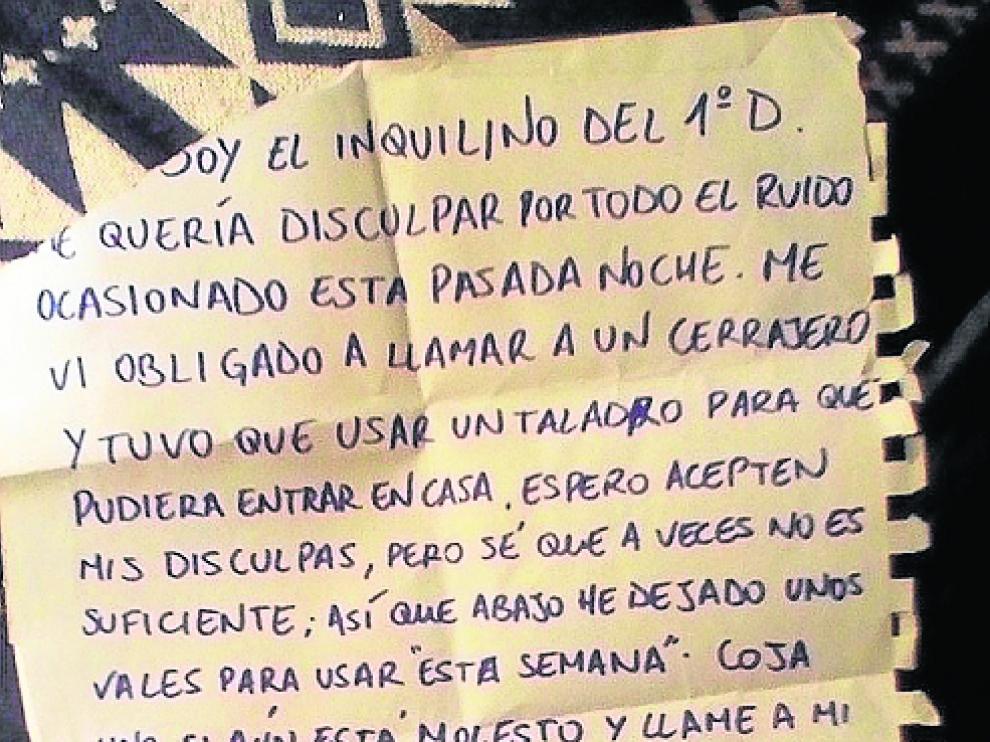 SOY EL INQUILINO DEL 1º D.
E QUERÍA DISCULPAR POR TODO EL RUIDO
OCASIONADO ESTA PASADA NOCHE. ME
VI OBLIGADO A LLAMAR A UN CERRAJERO
Y TUVO QUE USAR UN TALADRO PARA QUE
PUDIERA ENTRAR EN CASA. ESPERO ACEPTEN
MIS DISCULPAS, PERO SÉ QUE A VECES NO ES
SUFICIENTE; ASÍ QUE ABAJO HE DEJADO UNOS
VALES PARA USAR "ESTA SEMANA". COJA
UNO SI AÚN ESTÁ MOLESTO Y LLAME A MI